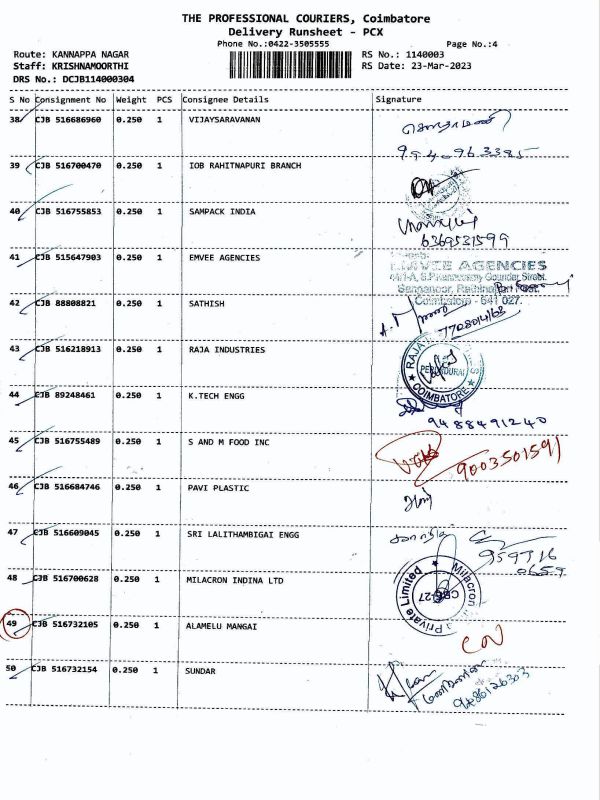 THE PROFESSIONAL COURIERS, Coimbatore
Delivery Runsheet - PCX
Phone No.:0422-3505555 Page No.:4
Route: KANNAPPA NAGAR RS No.: 1140003
Staff: KRISHNAMOORTHI RS Date: 23-Mar-2023
DRS No.: DCJB114000304
S No Consignment No Weight PCS Consignee Details Signature
38 CJB 516686960 0.250 1 VIJAYSARAVANAN
9940963385
39 CJB 516700470 0.250 1 IOB RAHITNAPURI BRANCH
40 CJB 516755853 0.250 1 SAMPACK INDIA
6369531599
41 CJB 515647903 0.250 1 EMVEE AGENCIES
EMVEE AGENCIES
Coimbatore - 641 027.
42 CJB 88808821 0.250 1 SATHISH
43 CJB 516218913 0.250 1 RAJA INDUSTRIES
COIMBATORE
44 CJB 89248461 0.250 1 K.TECH ENGG
9488491240
45 CJB 516755489 0.250 1 S AND M FOOD INC
9003501591
46 CJB 516684746 0.250 1 PAVI PLASTIC
47 CJB 516609045 0.250 1 SRI LALITHAMBIGAI ENGG
959716
0659
48 CJB 516700628 0.250 1 MILACRON INDINA LTD
Milacron Private Limited
CBE-27
49 CJB 516732105 0.250 1 ALAMELU MANGAI
50 CJB 516732154 0.250 1 SUNDAR
9486126303